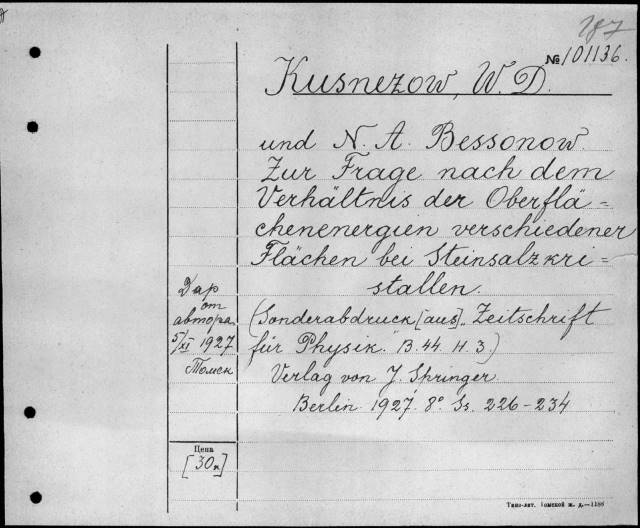 187
№ 101136.
Kusnezow, W. D.
und N. A. Bessonow.
Zur Frage nach dem
Verhältnis der Oberflä=
chenenergien verschiedener
Flächen bei Steinsalzkri=
stallen.
(Sonderabdruck [aus] „Zeitschrift
für Physik." B. 44. H. 3.)
Verlag von J. Springer
Berlin 1927. 8° Ss. 226-234
Дар
от
автора
5/XI 1927
Томск
Цена
[30к]
Типо-лит. Томской ж. д.—1186